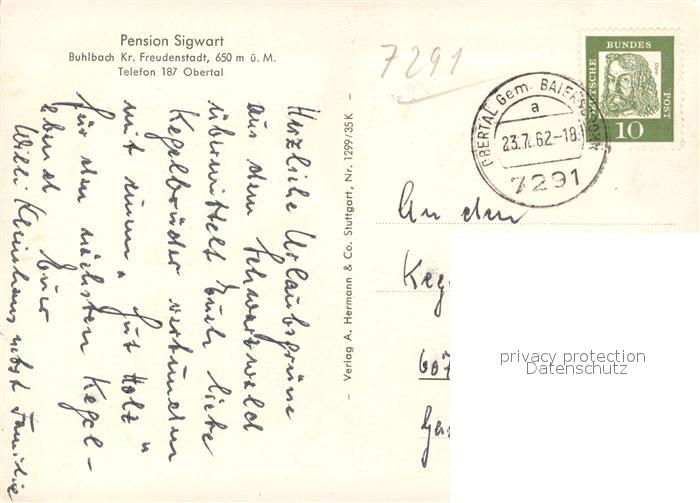 Pension Sigwart
Buhlbach Kr. Freudenstadt, 650 m ü. M.
Telefon 187 Obertal
Herzliche Urlaubsgrüsse
aus dem Schwarzwald
übermittelt Euch liebe
Kegelbrüder verbunden
mit einem "Gut Holz"
für den nächsten Kegel-
abend Euer
Willi Kleinhans nebst Familie
- Verlag A. Hermann & Co. Stuttgart, Nr. 1299/35 K -
7291
OBERTAL Gem. BAIERSBRONN
a
23.7.62-18
7291
DEUTSCHE BUNDES POST
Dürer
10
An den
Keg
607
privacy protection
Datenschutz